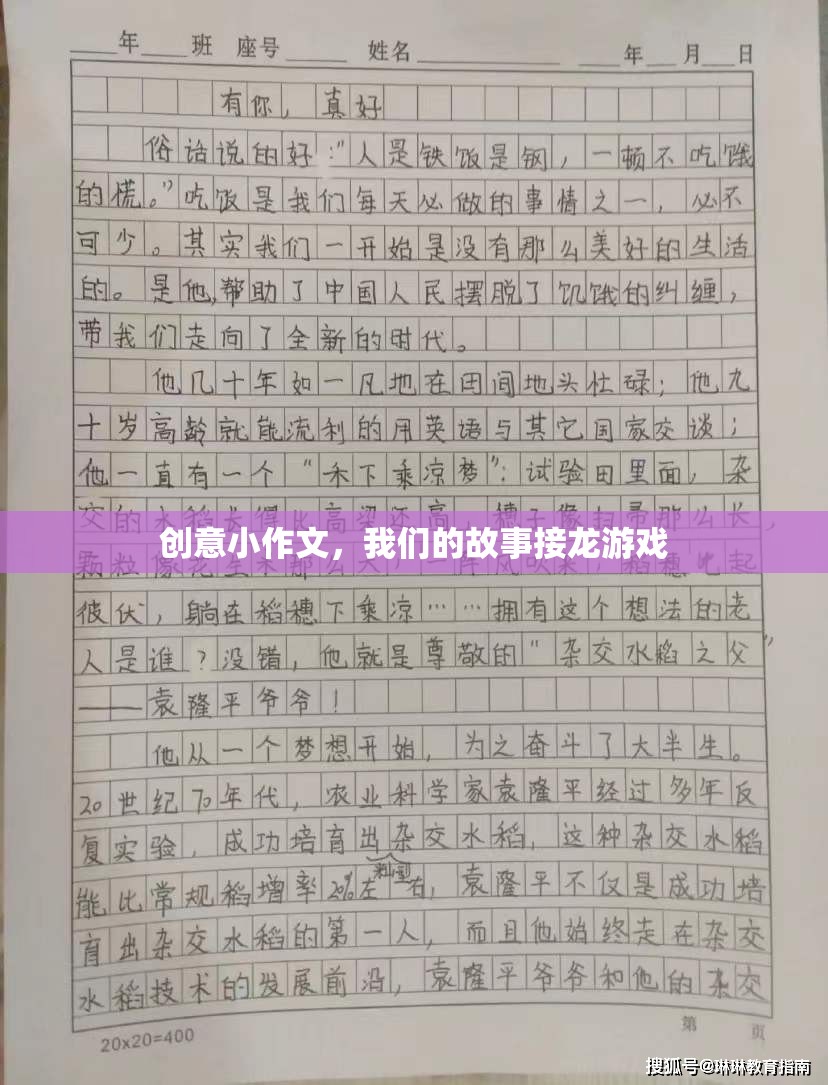 年 班 座号 姓名 年 月 日
有你，真好
俗话说的好："人是铁饭是钢，一顿不吃饿
的慌。"吃饭是我们每天必做的事情之一，必不
可少。其实我们一开始是没有那么美好的生活
的。是他，帮助了中国人民摆脱了饥饿的纠缠，
带我们走向了全新的时代。
他几十年如一凡地在田间地头忙碌；他九
十岁高龄就能流利的用英语与其它国家交谈；
他一直有一个"禾下乘凉梦"：试验田里面，杂
交的水稻长得比高粱还高，穗子像扫帚那么长，
创意小作文，我们的故事接龙游戏
颗粒像花生米那么大，一阵风吹来，稻穗此起
彼伏，躺在稻穗下乘凉……拥有这个想法的老
人是谁？没错，他就是尊敬的"杂交水稻之父"
——袁隆平爷爷！
他从一个梦想开始，为之奋斗了大半生。
20世纪70年代，农业科学家袁隆平经过多年反
复实验，成功培育出杂交水稻，这种杂交水稻
能比常规稻增率20%左右，袁隆平不仅是成功培
育出杂交水稻的第一人，而且他始终走在杂交
水稻技术的发展前沿，袁隆平爷爷和他的杂交
20×20=400
第 页
搜狐号@琳琳教育指南